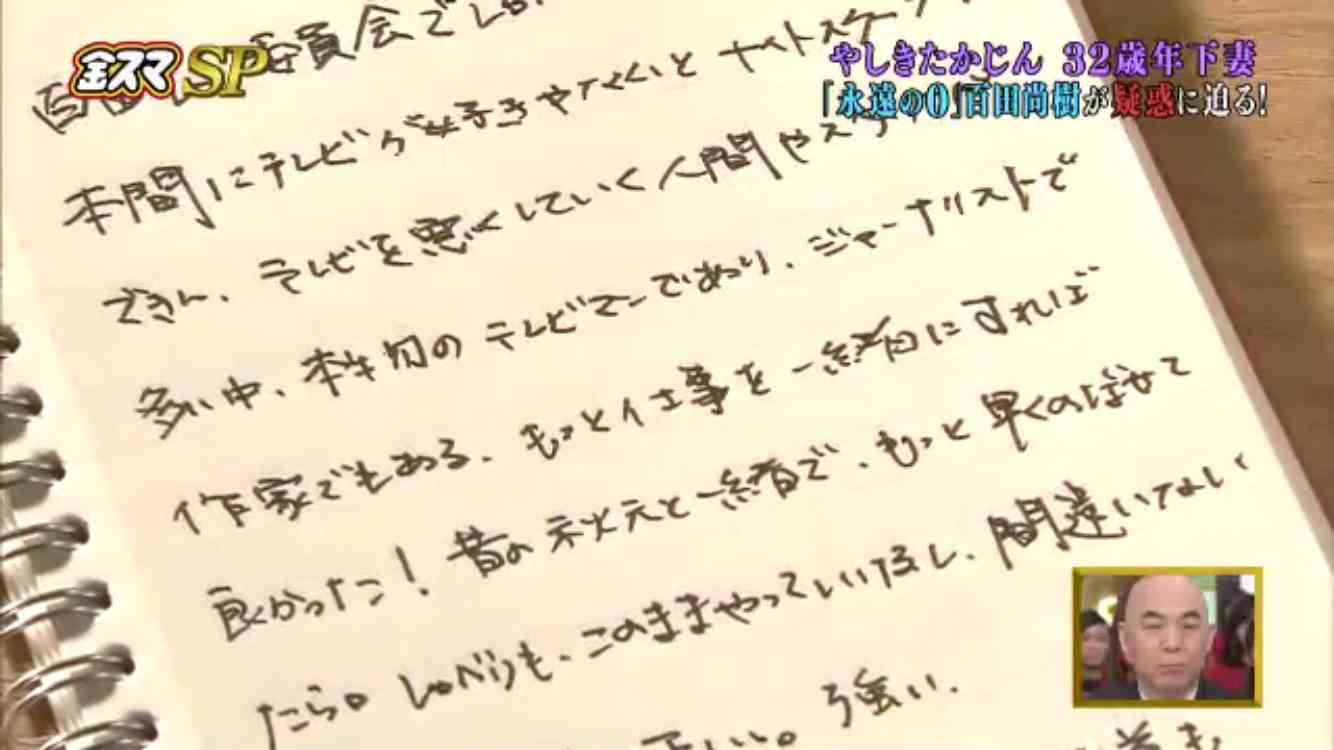 金スマSP
やしきたかじん 32歳年下妻
「永遠の0」百田尚樹が疑惑に迫る!
百田 委員会で
本間にテレビが好きやでくいと ナイトスク
できん、テレビを悪くしていく人間や
多い中、本当の テレビマンであり、ジャーナリストで
作家でもある、もっと仕事を一緒にすれば
良かった! 昔の 秋元と一緒で、もっと 早くのぼせて
たら。しゃべりも、このままやっていいほし、間違いない
正しい。強い、